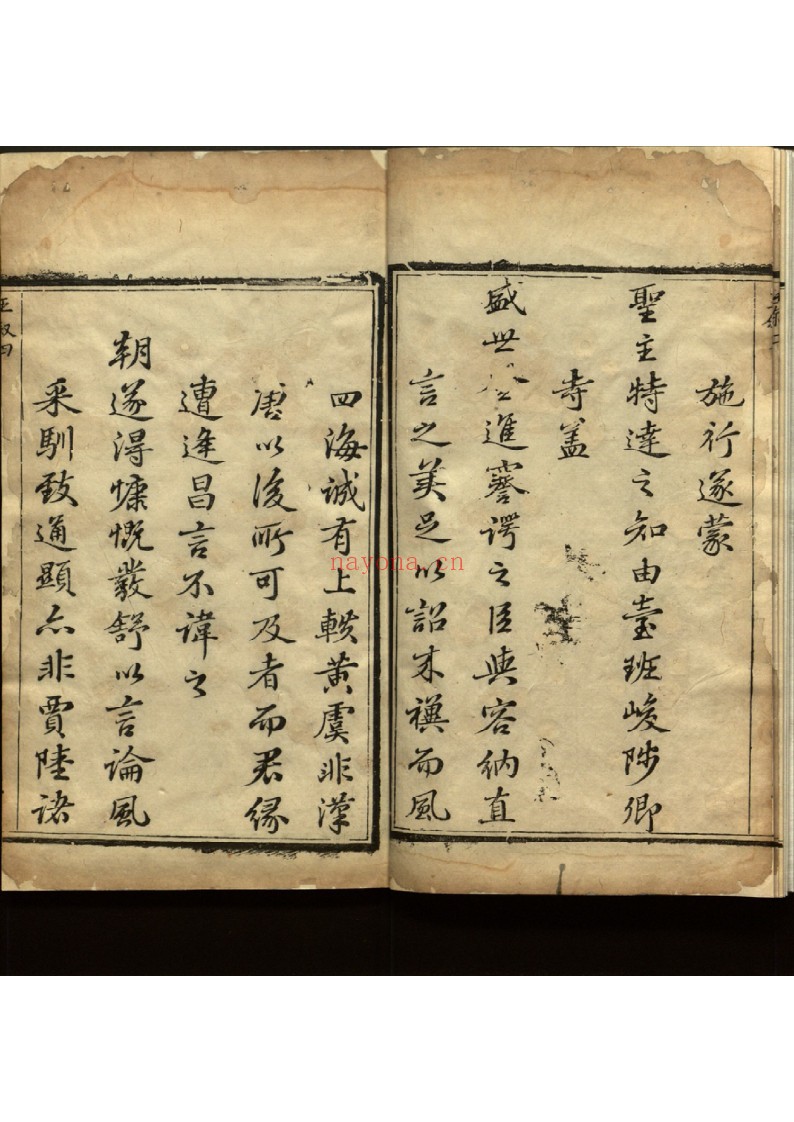 施行遂蒙
聖主特達之知由臺班峻陟卿
寺蓋
盛世登進謇諤之臣與容納直
言之美足以詔來禩而風
四海誠有上軼黃虞非漢
唐以後所可及者而君緣
遭逢昌言不諱之
朝遂得慷慨發舒以言論風
采馴致通顯亦非賈陸諸
nayona.cn